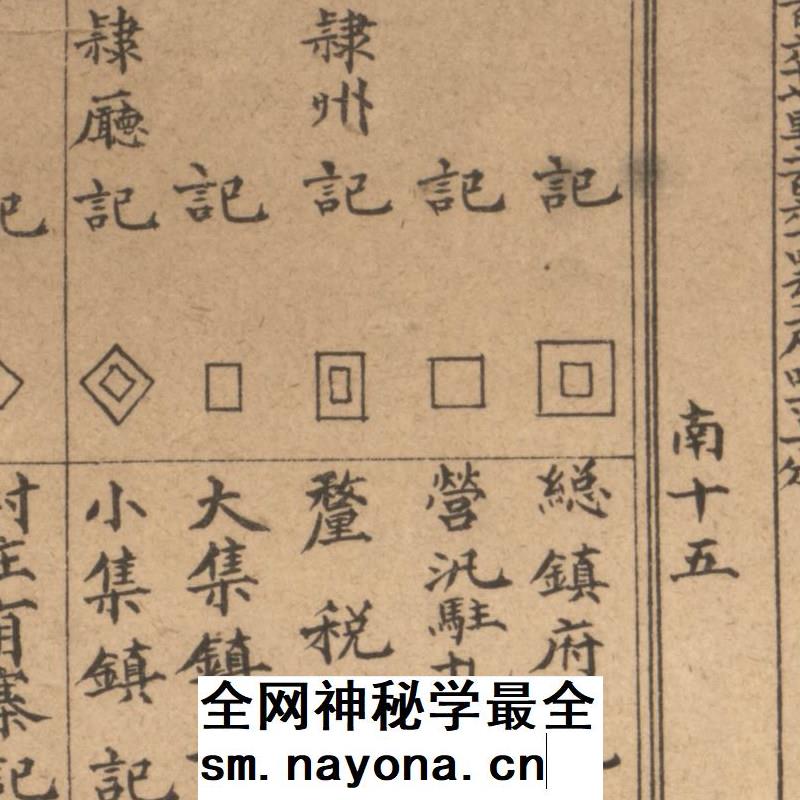 南十五
記
記
隷州記
記
隷廳記
記
總鎮府
營汛駐
釐税
大集鎮
小集鎮記
村庄有寨記
全网神秘学最全
sm.nayona.cn